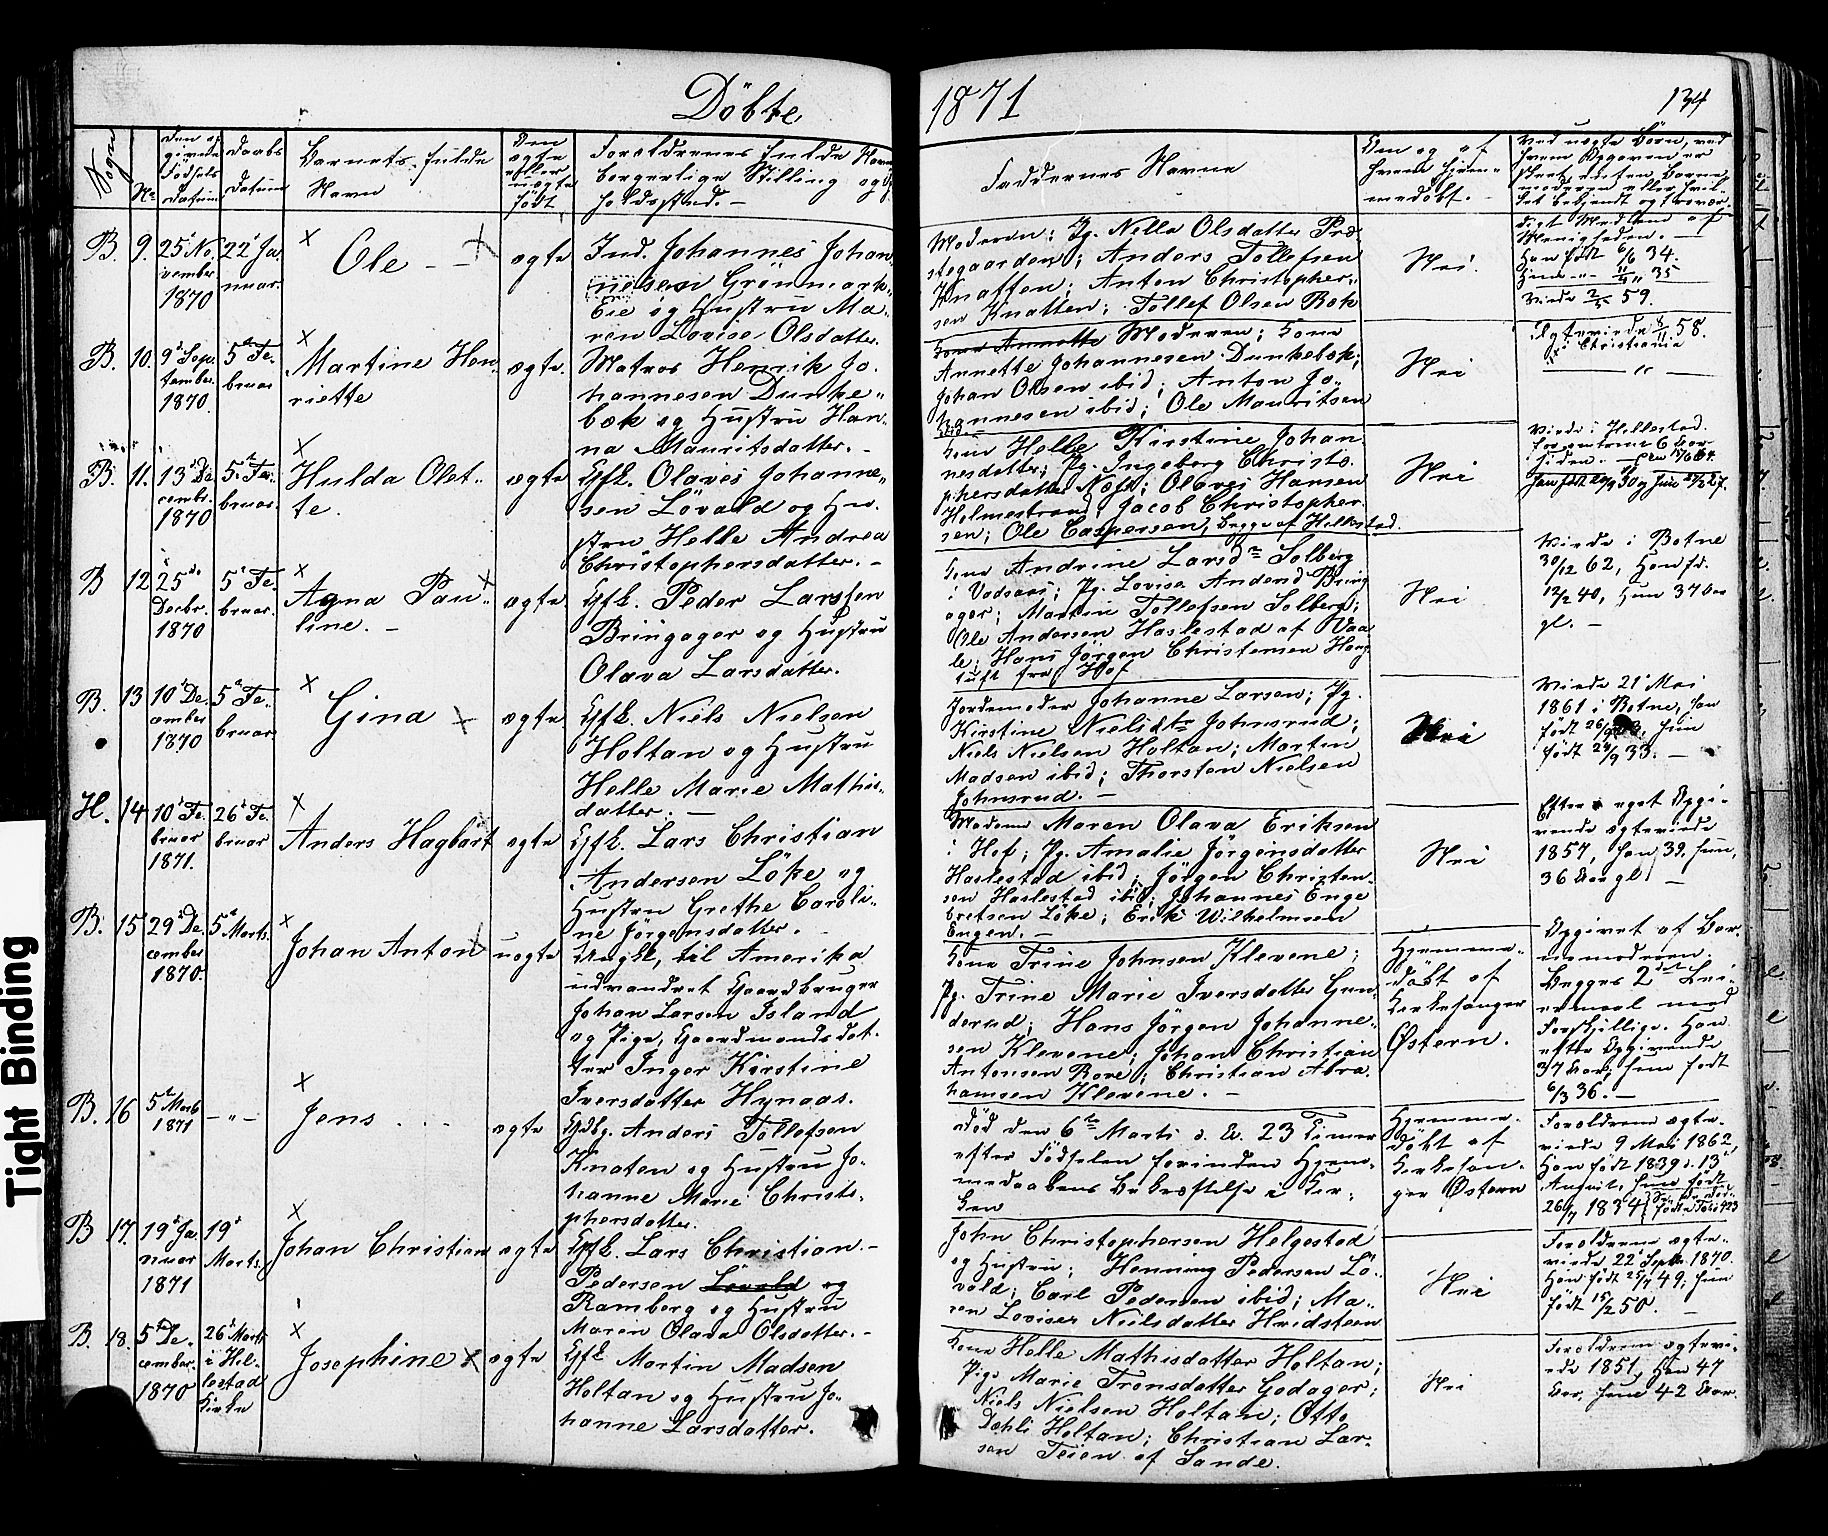 Döbte 1871
134
Sogn
No
Den op
givne
Födsels
Datum
Daabs
Datum
Barnets fulde
Navn
Om
ægte
eller
uægte
födt.
Forældrenes fulde Navne
borgerlige Stilling og
Holdssted.
Faddernes Navne
Om og af
hvem hjem-
medöbt.
Ved uægte Börn, ved
hvem Opgaven er
skeet enten Barne-
moderen eller hvil-
ket bekjendt og trovær-
digt Medlem af
Menigheden.
B. 9. 25 No
vember
1870
22 Ja
nuar
Ole
ægte
Ind. Johannes Johan
nesen Grönmark
Eie og Hustru Ma-
ren Lovise Olsdatter.
Moderen; Pg. Nella Olsdatter Præ
stegaarden; Anders Tollefsen
Knatten; Anton Christopher-
sen Knatten; Tollef Olsen Bok
Nei.
Han födt 6/6 34.
35
59.
B. 10. 9 Sep.
tember
1870.
5 Fe-
bruar
Martine Hen
riette
ægte
Matros Henrik Jo-
hannesen Dunke-
bæk og Hustru Han-
na Mauritsdatter.
Kone Annette Moderen; Kone
Annette Johannesen Dunkebæk;
Johan Olsen ibid; Anton Jo-
hannesen ibid; Ole Mauritsen
ibid.
Nei
Ægteviede 58.
i Christiania
B. 11. 13 De
cembr.
1870
5 Fe-
bruar.
Hulda Olet-
te.
ægte
Gfk. Olaves Johanne-
sen Lövald og Hu-
stru Helle Andrea
Christophersdatter.
Helle Kirstine Johan
nesdatter; Pg. Ingeborg Christo-
phersdatter Næs; Olaves Hansen
Holmestrand; Jacob Christopher
sen; Ole Caspersen, begge af Hillestad.
Nei
Viede i Hillestad
for omtrent 6 Aar
siden.
B 12 25
Decbr.
1870
5 Fe-
bruar.
Agna Pau-
line.
ægte
Gfk. Peder Larssen
Bringager og Hustru
Olava Larsdatter.
Kone Andrine Larsd. Solberg
i Vadsaas; Pg. Lovise Andersd Bring
ager; Martin Tollefsen Solberg;
Ole Andersen Haslestad af Vaa
le; Hans Jörgen Christensen Haug
tuft fra Hof
Nei
Viede i Botne
30/12 62, Han fd.
12/2 40, Hun 37 Aar
gl.
B. 13 10 De
cember
1870
5 Fe-
bruar.
Gina
ægte
Gfk. Niels Nielsen
Holtan og Hustru
Helle Marie Mathis-
datter.
Jordemoder Johanne Larsen; Pg.
Kirstine Nielsdtr Johnsrud;
Niels Nielsen Holtan; Martin
Madsen ibid; Thorsten Nielsen
Johnsrud.
Nei
Viede 21 Mai
1861 i Botne, han
födt hun
födt 24/9 33.
H. 14 10 Fe
bruar
1871.
26 Fe
bruar
Anders Hagbart
ægte
Gfk. Lars Christian
Andersen Löke og
Hustru Grethe Caroli-
ne Jörgensdatter.
Madame Maren Olava Eriksen
i Hof; Pg. Amalie Jörgensdatter
Haslestad ibid; Jörgen Christen-
sen Haslestad ibid; Johannes Enge
bretsen Löke; Erik Wilhelmsen
Engen.
Nei
Efter eget Opgi-
vende ægteviede
1857, han 39, hun,
36 Aar gl.
B. 15 29 De
cember
1870.
5 Marts.
Johan Anton
uægte
Ungk. til Amerika
udvandret Gaardbruger
Johan Larsen Island
og Pige, Gaardmandsdat-
ter Inger Kirstine
Iversdatter Hynaas.
Kone Trine Johnsen Klevene;
Pg. Trine Marie Iversdatter Gun
derud; Hans Jörgen Johanne-
sen Klevene; Johan Christian
Antonsen Rove; Christian Abra
hamsen Klevene.
Hjemme-
döbt af
Kirkesanger
Østern.
Opgivet af Bar-
nemoderen.
Begges 2det Lei-
ermaal med
Forskjellige. Han
efter Opgivende
37 Aar, hun födt
6/3 36.
B. 16 5 Marts
1871
Jens
ægte
Gdbg. Anders Tollefsen
Knaten og Hustru Jo-
hanne Marie Christo-
phersdatter.
Död den 6te Marts d. A. 23 Timer
efter Födselen forinden Hjem-
medaabens Bekræftelse i Kir-
ken
Hjemme-
döbt af
Kirkesan-
ger Østern
Forældrene ægte-
viede 9 Mai 1862
Han födt 1839 d. 13
August, hun födt
26/7 1834
B 17. 19 Ja
nuar
1871
19
Marts.
Johan Christian
ægte
Gfk. Lars Christian
Pedersen Lövald og
Ramberg og Hustru
Maren Olava Olsdatter.
John Christophersen Helgestad
og Hustru; Henning Pedersen Lö-
vald; Carl Pedersen ibid; Ma-
ren Lovise Nielsdatter Hvidsteen
Nei
Forældrene ægte-
viede 22 Septbr. 1870.
Han födt 25/7 49; hun
födt 15/2 50.
B. 18. 5 De-
cember.
1870
26 Marts
i Hil-
lestad
Kirke
Josephine
ægte
Gfk Martin Madsen
Holtan og Hustru Jo-
hanne Larsdatter.
Kone Helle Mathisdatter Holtan;
Pige Marie Tronsdatter Godager;
Niels Nielsen Holtan; Otto
Dehli Holtan; Christian Lar-
sen Teien af Sande.
Nei
Forældrene ægtevi-
ede 1851, Han 47
Aar, hun 42 Aar.
Tight Binding